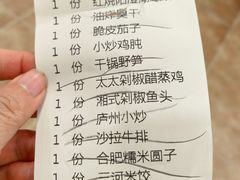 1 份 红烧阳澄湖
1 份 油炸臭干
1 份 脆皮茄子
1 份 小炒鸡肫
1 份 干锅野笋
1 份 太太剁椒醋蒸鸡
1 份 湘式剁椒鱼头
1 份 庐州小炒
1 份 沙拉牛排
1 份 合肥糯米圆子
1 份 三河米饺